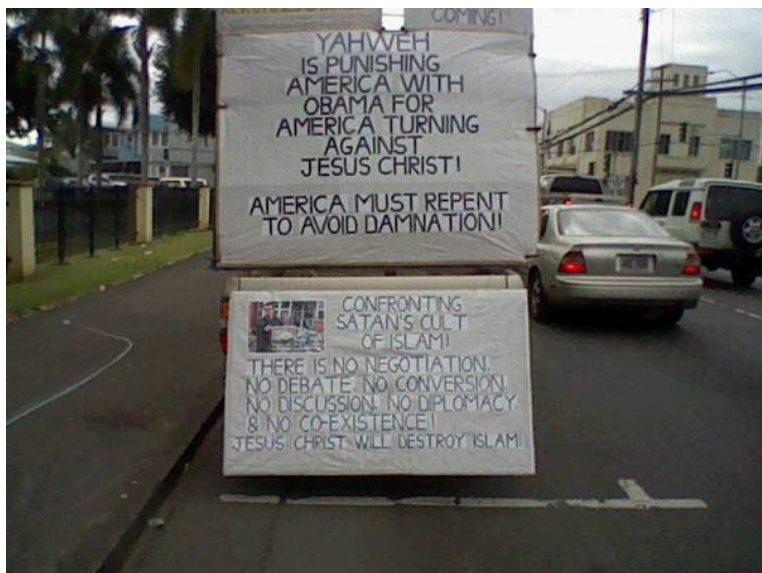 COMING!
YAHWEH
IS PUNISHING
AMERICA WITH
OBAMA FOR
AMERICA TURNING
AGAINST
JESUS CHRIST!
AMERICA MUST REPENT
TO AVOID DAMNATION!
CONFRONTING
SATAN'S CULT
OF ISLAM!
THERE IS NO NEGOTIATION,
NO DEBATE, NO CONVERSION,
NO DISCUSSION, NO DIPLOMACY
& NO CO-EXISTENCE!
JESUS CHRIST WILL DESTROY ISLAM!